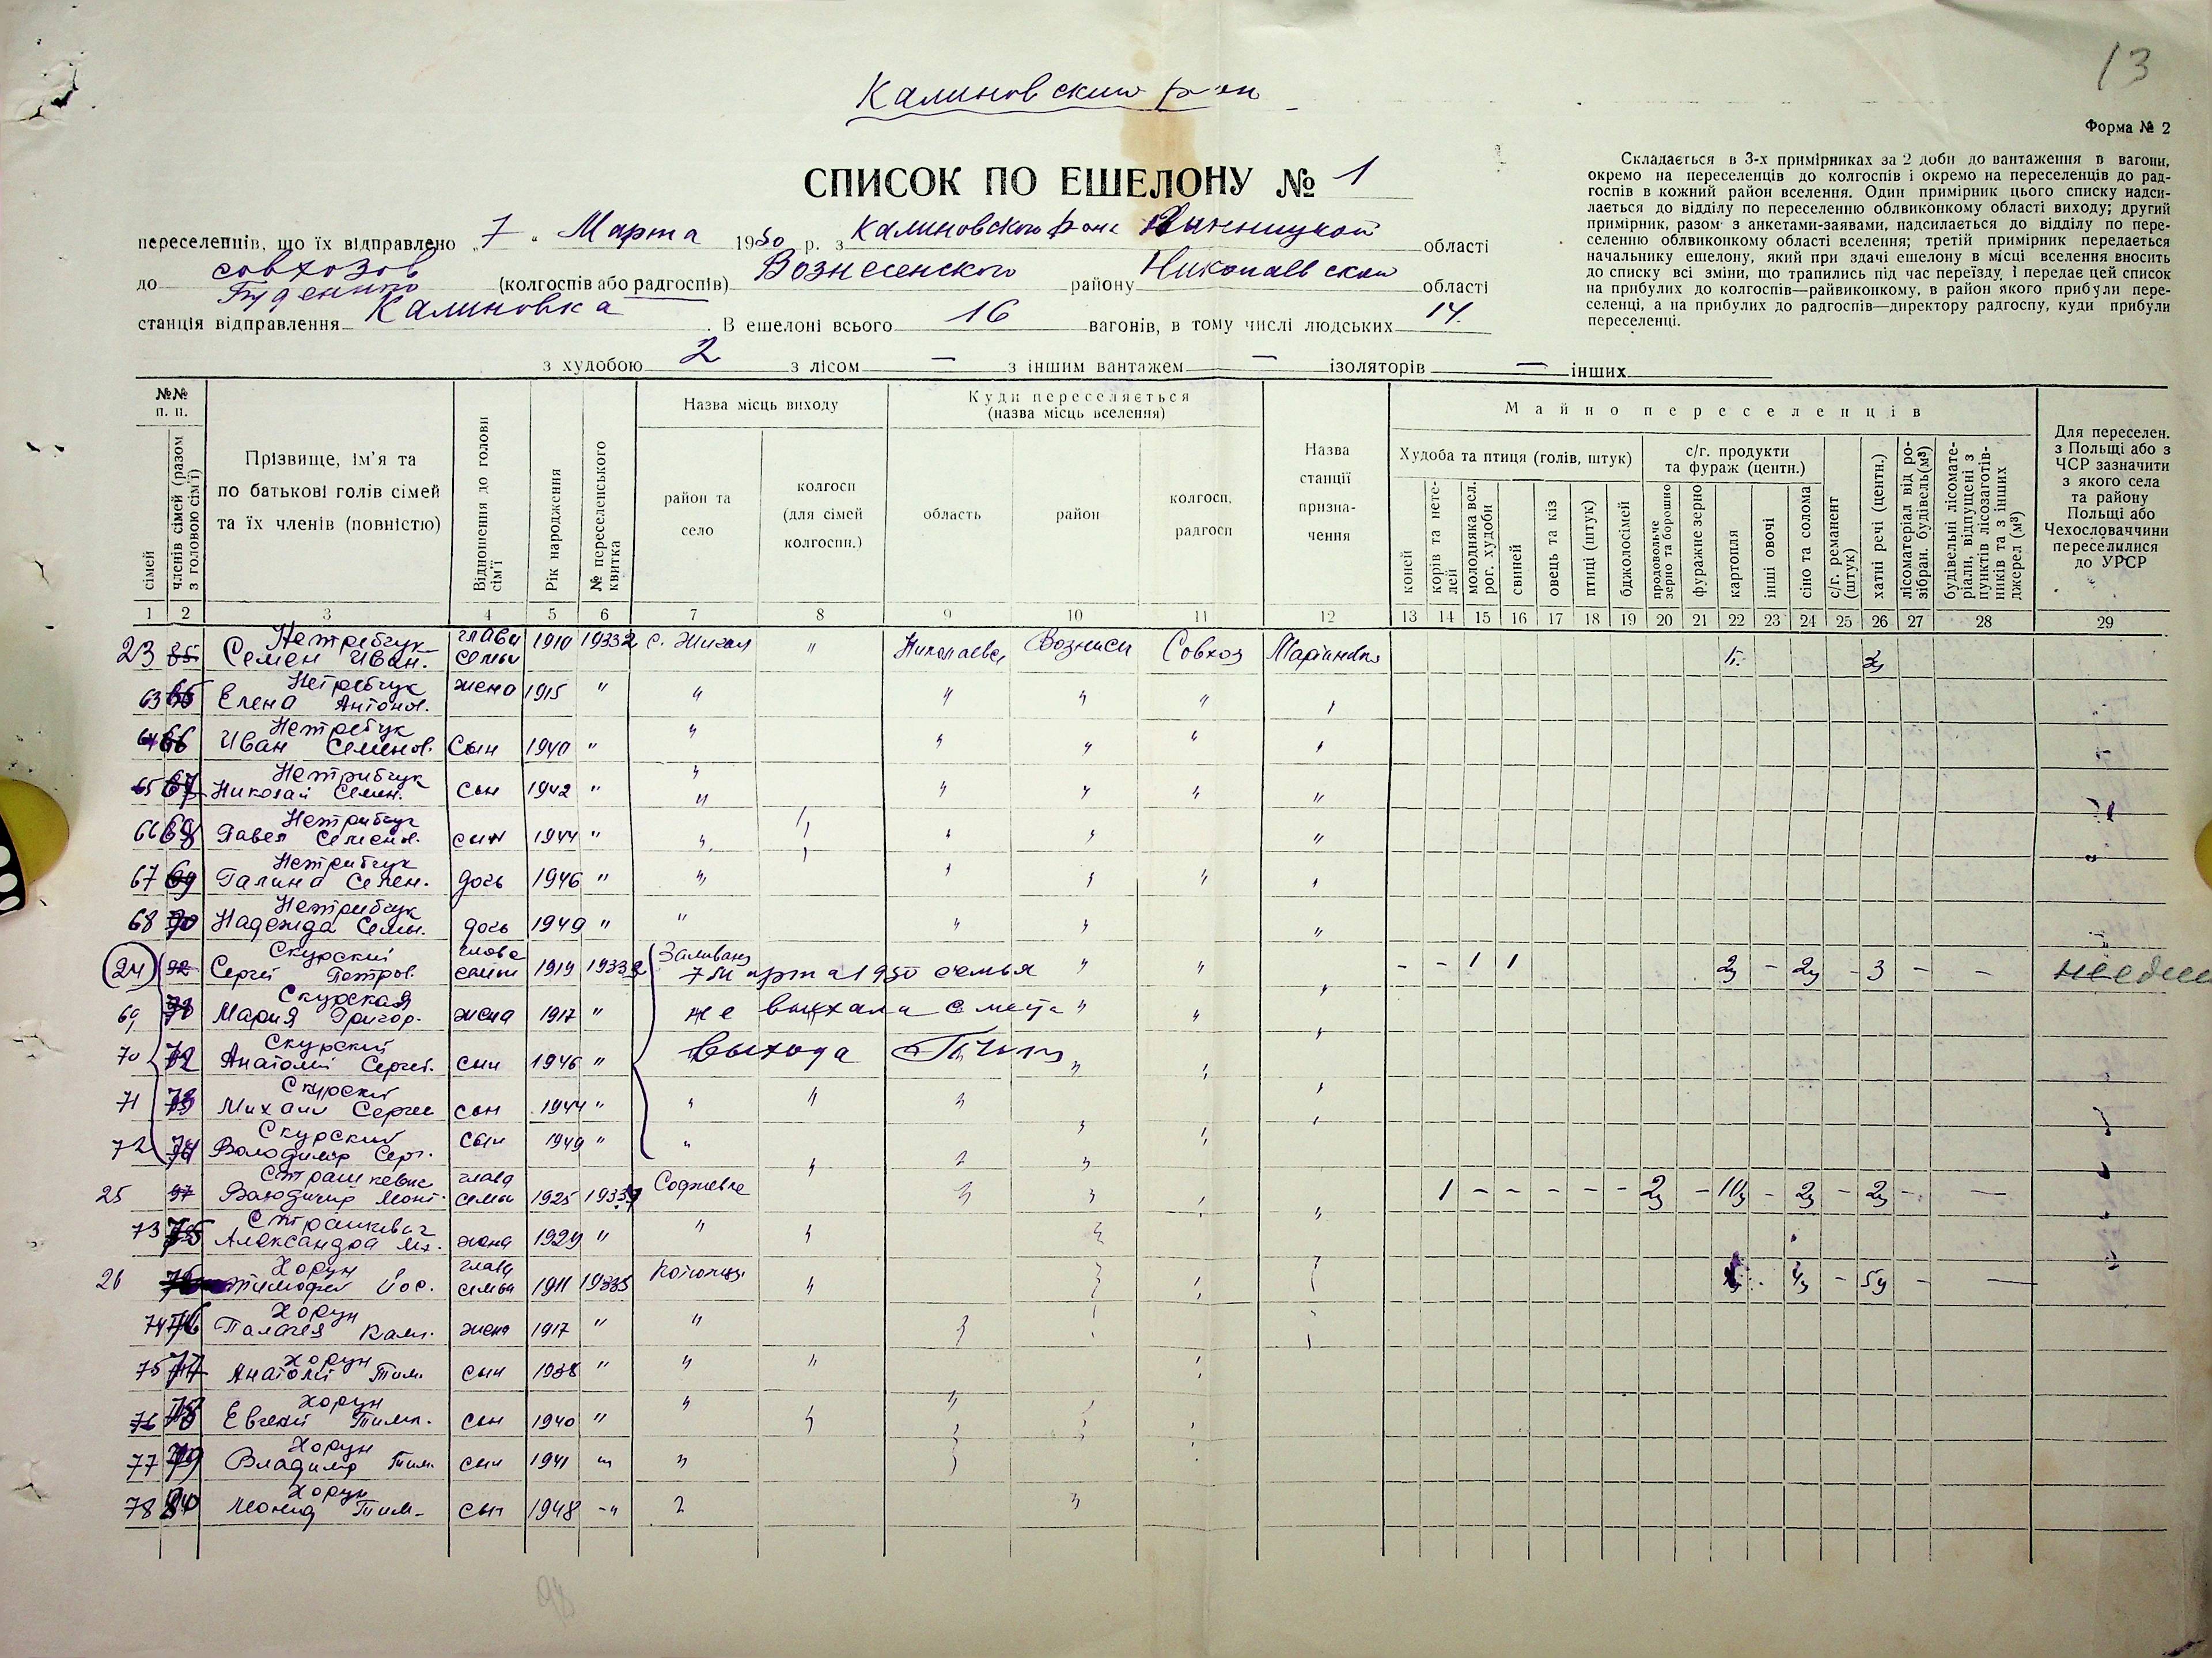 13
Калиновский р-он
Форма № 2
СПИСОК ПО ЕШЕЛОНУ № 1
Складається в 3-х примірниках за 2 доби до вантаження в вагони,
окремо на переселенців до колгоспів і окремо на переселенців до рад-
госпів в кожний район вселення. Один примірник цього списку надси-
лається до відділу по переселенню облвиконкому області виходу; другий
примірник, разом з анкетами-заявами, надсилається до відділу по пере-
селенню облвиконкому області вселення; третій примірник передається
начальнику ешелону, який при здачі ешелону в місці вселення вносить
до списку всі зміни, що трапились під час переїзду, і передає цей список
на прибулих до колгоспів—райвиконкому, в район якого прибули пере-
селенці, а на прибулих до радгоспів—директору радгоспу, куди прибули
переселенці.
переселенців, що їх відправлено „7“ Марта 1950 р. з Калиновского р-она Винницкой області
до совхозов Буденного (колгоспів або радгоспів) Вознесенского району Николаевской області
станція відправлення Калиновка. В ешелоні всього 16 вагонів, в тому числі людських 14.
з худобою 2 з лісом — з іншим вантажем — ізоляторів — інших
№№ п. п.
сімей
членів сімей (разом з головою сім'ї)
Прізвище, ім'я та по батькові голів сімей та їх членів (повністю)
Відношення до голови сім'ї
Рік народження
№ переселенського квитка
Назва місць виходу
район та село
колгосп (для сімей колгоспн.)
Куди переселяється (назва місць вселення)
область
район
колгосп, радгосп
Назва станції призна- чення
Майно переселенців
Худоба та птиця (голів, штук)
коней
корів та нете- лей
молодняка вел. рог. худоби
свиней
овець та кіз
птиці (штук)
бджолосімей
с/г. продукти та фураж (центн.)
продовольче зерно та борошно
фуражне зерно
картопля
інші овочі
сіно та солома
с/г. реманент (штук)
хатні речі (центн.)
лісоматеріал від ро- зібран. будівель (м³)
будівельні лісомате- ріали, відпущені з пунктів лісозаготів- ників та з інших джерел (м³)
Для переселен. з Польщі або з ЧСР зазначити з якого села та району Польщі або Чехословаччини переселилися до УРСР
1 2 3 4 5 6 7 8 9 10 11 12 13 14 15 16 17 18 19 20 21 22 23 24 25 26 27 28 29
23 Нетребчук Семен Иван. глава семьи 1910 19332 "
Совхоз
63 Нетребчук Елена Антонов. жена 1915 " " " " "
64 66 Нетребчук Иван Семенов. Сын 1940 " " " " "
65 67 Нетрибчук Николай Семен. сын 1942 " " " " " "
66 68 Нетрибчук Павел Семенов. сын 1944 " " " " "
67 69 Нетрибчук Галина Семен. дочь 1946 " " " " "
68 70 Нетрибчук Надежда Семен. дочь 1949 " " " " "
24 Скурский Сергей Петров. глава семьи 1919 7 Марта 1950 семья " " - - 1 1 2ц - 2ц - 3 - -
69 Скурская Мария Григор. жена 1917 " не выехала с места " "
70 72 Скурский Анатолий Сергее. сын 1946 " выхода " "
71 73 Скурский Михаил Сергее сын 1944 " " " "
72 74 Скурский Володимир Серг. сын 1949 " " "
25 Страшкевич Володимир глава семьи 1925 1 - - - - - 2ц - 10ц - 2ц - 2ц - —
73 75 Страшкевич Александра жена 1929 " " "
26 Хорун Тимофей Йос. глава семьи 1911 19335 " 4ц - 5ц - —
74 76 Хорун Палагея жена 1917 " "
75 77 Хорун Анатолий Тим. сын 1938 " " "
76 78 Хорун Евгений Тим. сын 1940 " " "
77 79 Хорун Владимир Тим. сын 1941 " "
78 80 Хорун Леонид Тим. сын 1948 - "